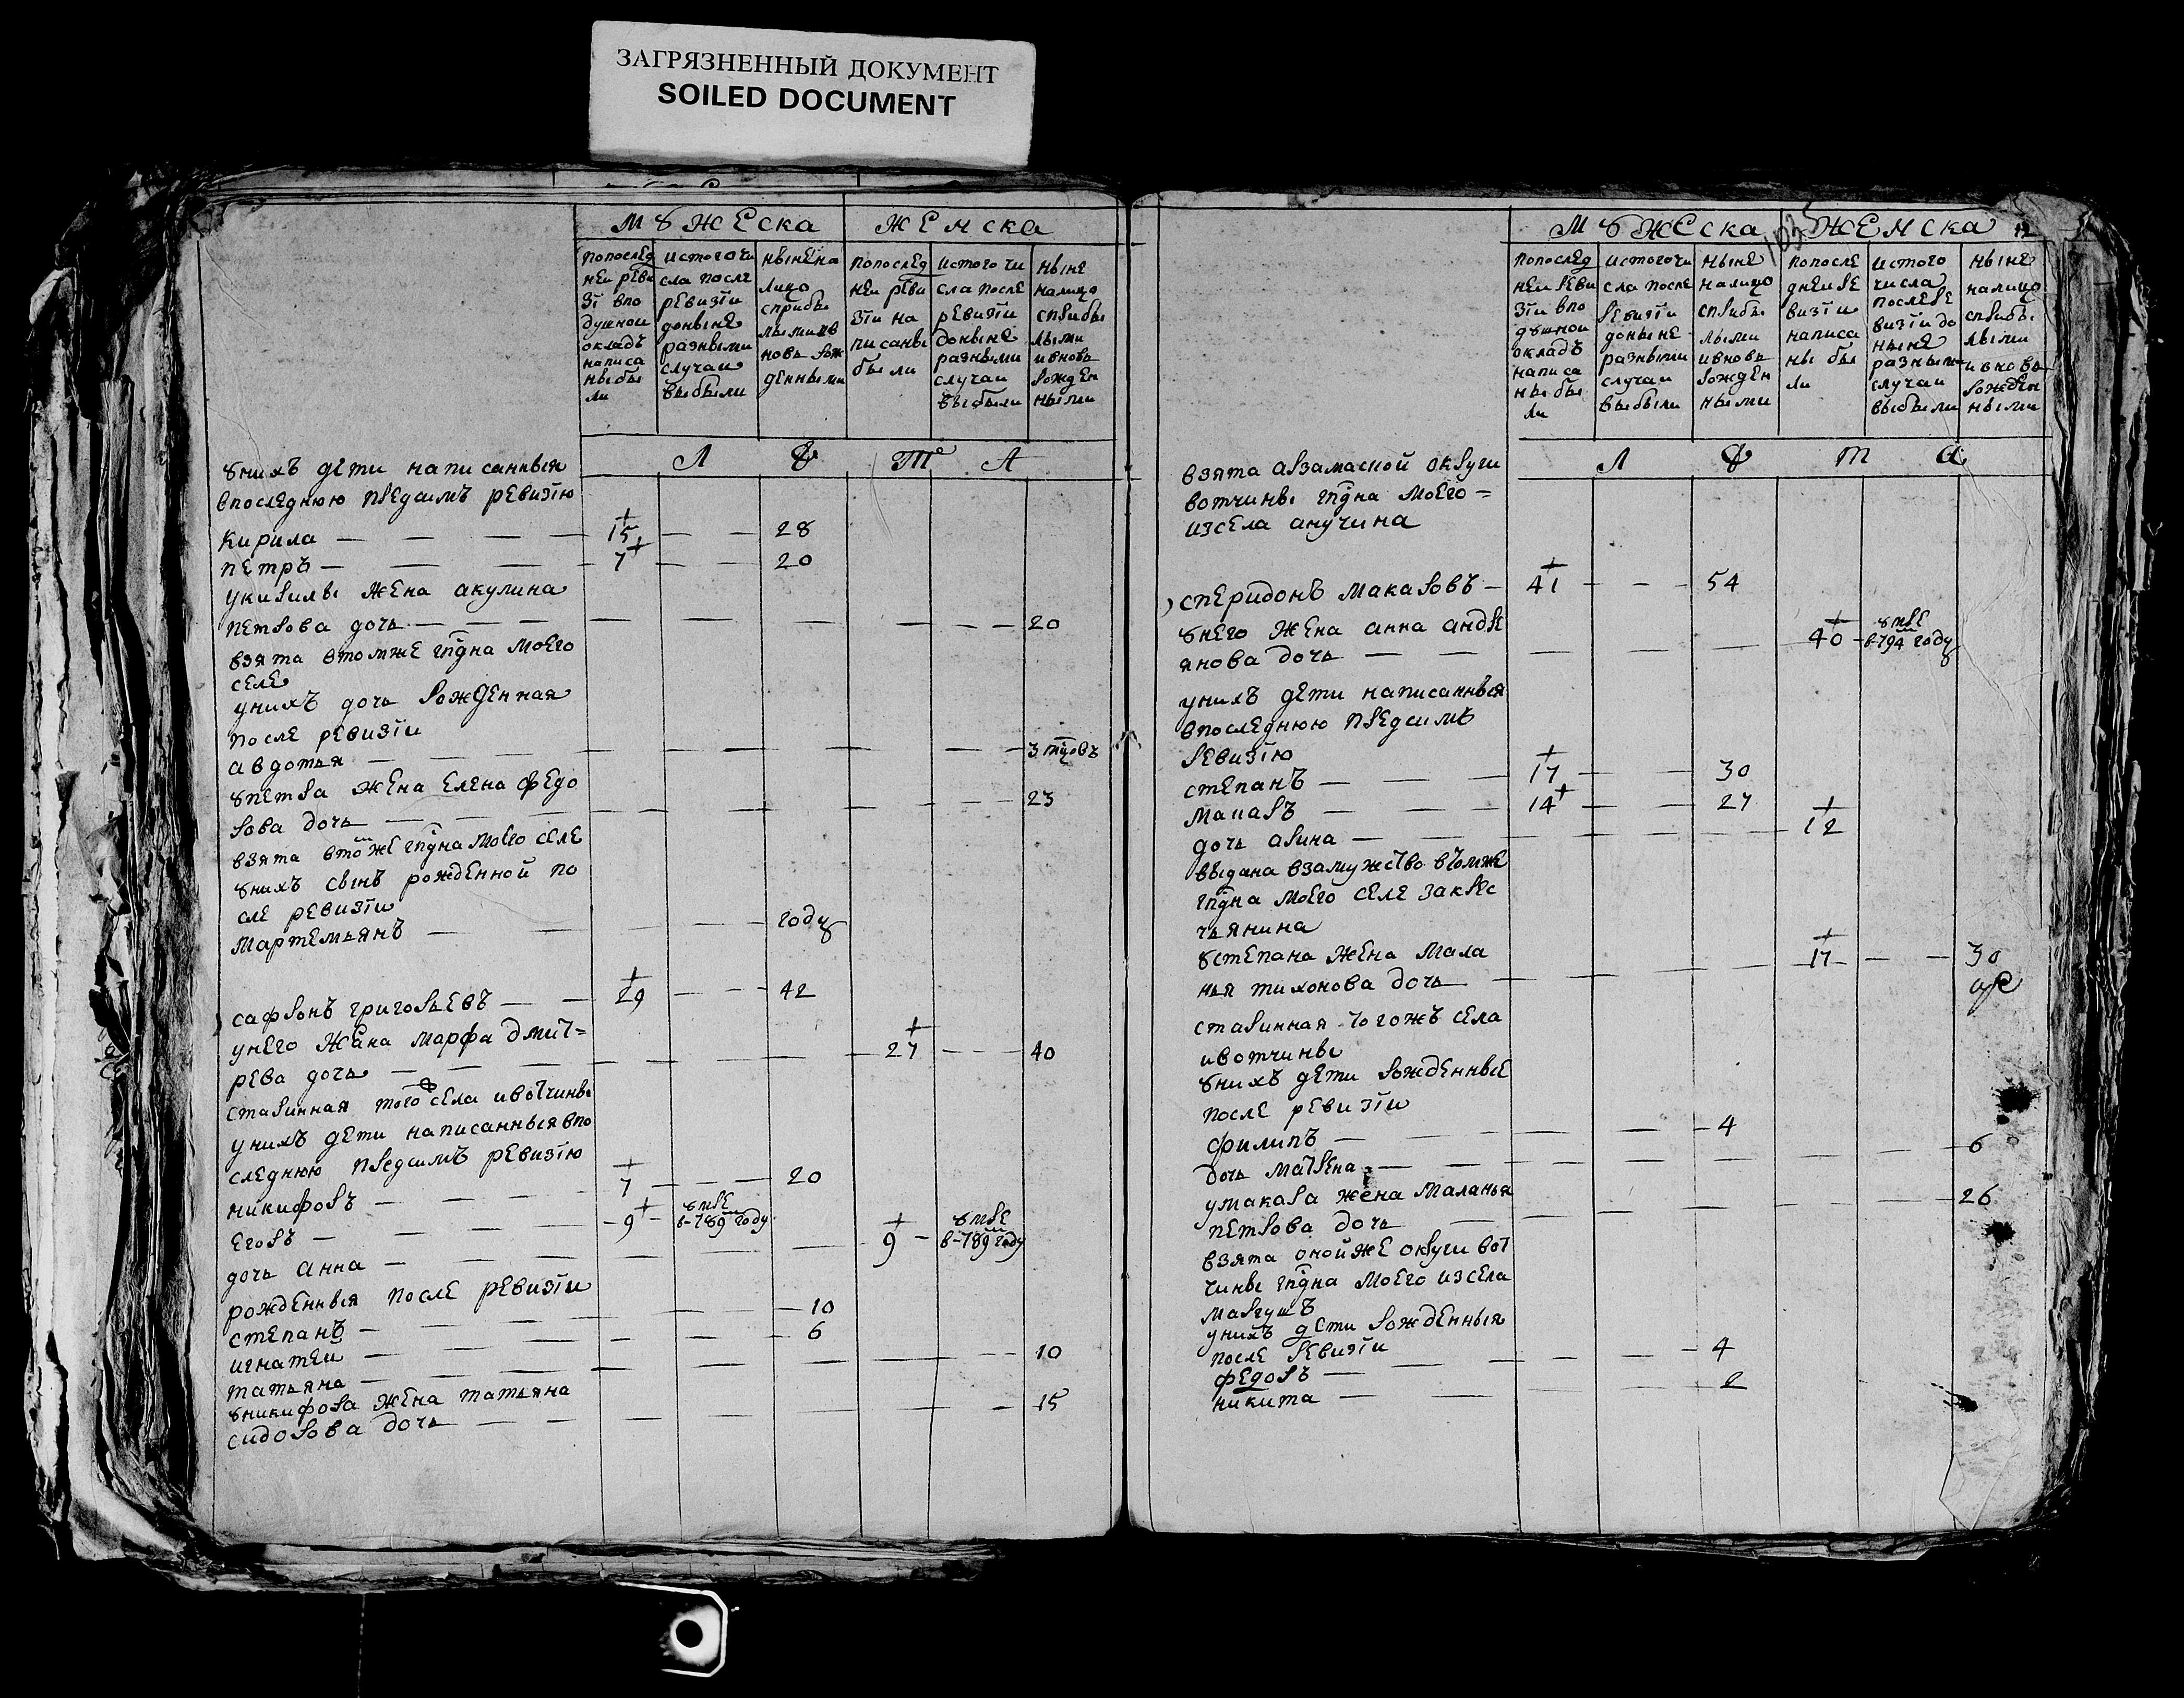 ЗАГРЯЗНЕННЫЙ ДОКУМЕНТ
SOILED DOCUMENT
мужеска женска
попослед неи реви зӏи впо душнои окладъ написа ны бы ли
истогочи сла после ревизӏи доныне разными случаи выбыли
ныне на лицо сприбы лыми ив новь рож денными
попослед неи реви зӏи на писаны были
истого чи сла после ревизӏи доныне разными случаи выбыли
ныне налицо сприбы лыми ивновь рожден ными
Л Ѣ Т А
унихъ дети написанныя
впоследнюю предсимъ ревизӏю
кирила — — — — 15 — — 28
петръ — — — — 7 — — 20
укирилы жена акулина
петрова дочь — — — — — — — — — 20
взята втомже гпдна моего
селе
унихъ дочь рожденная
после ревизӏи
авдотья — — — — — — — — 3 мцовъ
упетра жена елена федо
рова дочь — — — — — — — — 23
взята втомже гпдна моего селе
унихъ сынъ рожденной по
сле ревизӏи
мартемьянъ — — — — — году
сафронъ григорьевъ — — 29 — — 42
унего жена марфа дмит=
рева дочь — — — — — — 27 — — 40
старинная того села ивотчины
унихъ дети написанныя впо
следнюю предсимъ ревизӏю
никифоръ — — — 7 — — 20
егоръ — — — 9 — умре в-789м году
дочь анна — — — — — — 9 — умре в-789м году
рожденныя после ревизӏи
степанъ — — — — — 10
игнатеи — — — — — 6
татьяна — — — — — — — — 10
уникифора жена татьяна
сидорова дочь — — — — — — — 15
103 12
мужеска женска
попослед неи реви зӏи впо душнои окладъ написа ны бы ли
истогочи сла после ревизӏи доныне разными случаи выбыли
ныне налицо сприбы лыми ивновь рожден ными
попосле днеи ре визӏи написа ны бы ли
истого числа послере визӏи до ныне разными случаи выбыли
ныне налицо сприбы лыми ивновь рожден ными
Л Ѣ Т А
взята арзамаской округи
вотчины гпдна моего=
изсела анучина
сперидонъ макаровъ — 41 — — 54
унего жена анна андре
янова дочь — — — — — — 40 — умре в-794м году
унихъ дети написанныя
впоследнюю предсимъ
ревизӏю
степанъ — — — 17 — — 30
макаръ — — — 14 — — 27
дочь арина — — — — — — 12
выдана взамужство втомже
гпдна моего селе закрес
тьянина
устепана жена мала
нья тихонова дочь — — — — 17 — — 30
старинная тогожъ села
ивотчины
унихъ дети рожденные
после ревизӏи
филипъ — — — — — 4
дочь матрена — — — — — — — — 6
умакара жена маланья
петрова дочь — — — — — — — 26
взята онойже округи вот
чины гпдна моего изсела
маргушъ
унихъ дети рожденныя
после ревизӏи
федоръ — — — — — 4
никита — — — — — 2